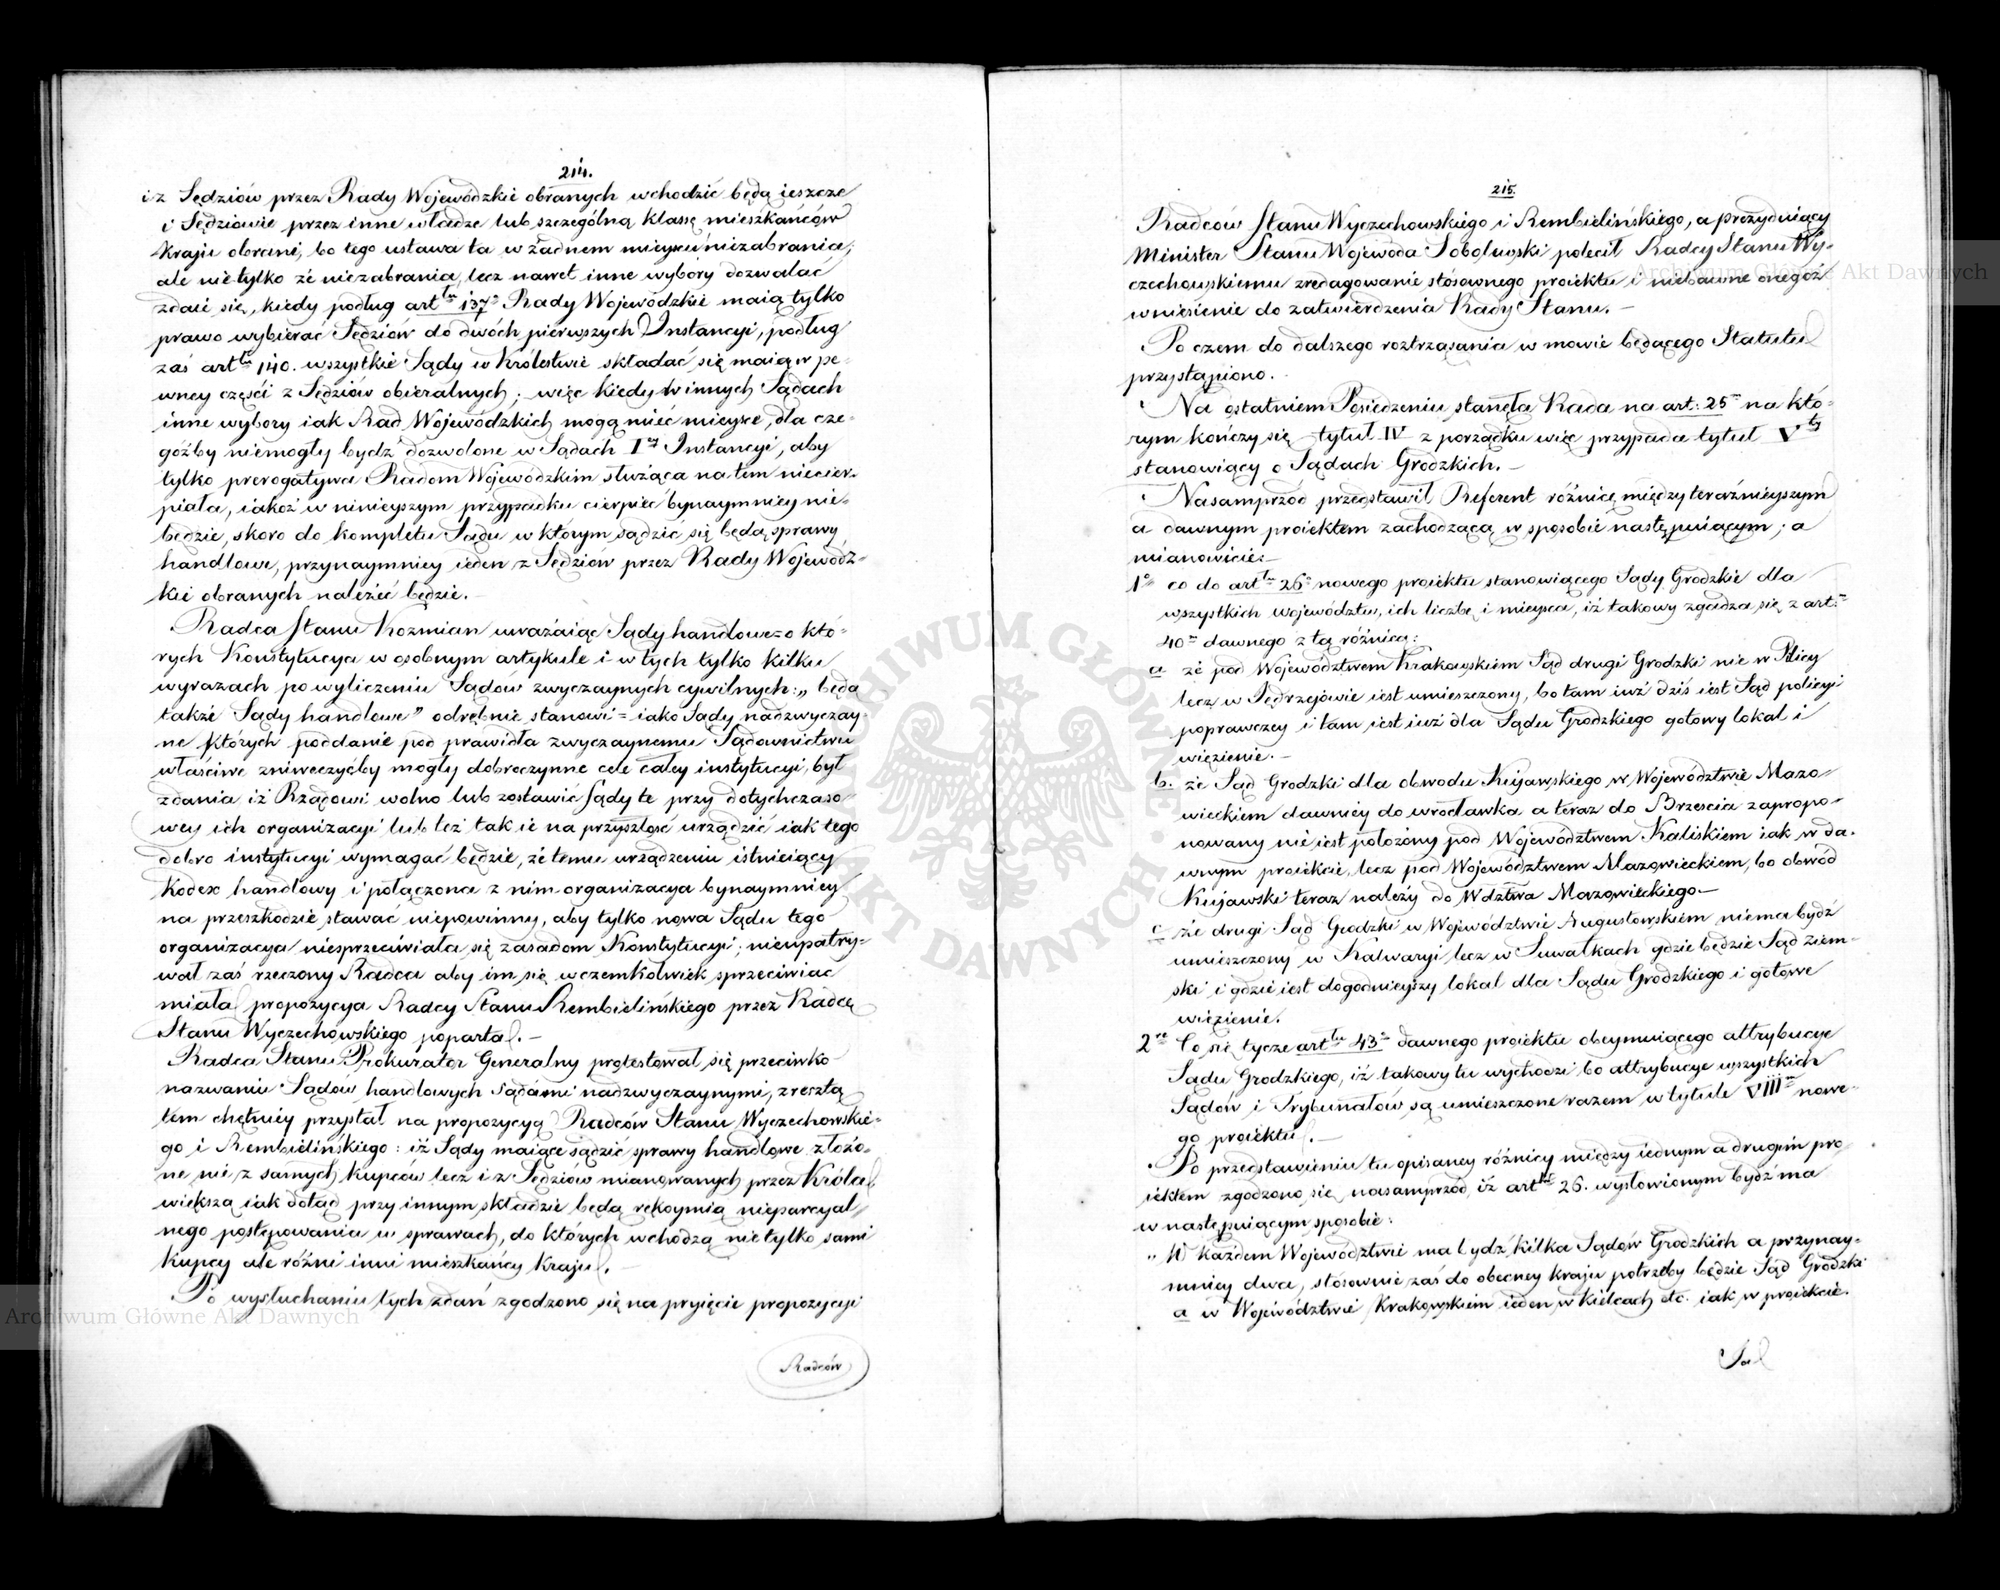 214.
i z Sędziów przez Rady Wojewódzkie obranych wchodzić będą ieszcze
i Sędziowie przez inne władze lub szczególną klassę mieszkańców
kraju obrani, bo tego ustawa ta w żadnem mieyscu niezabrania;
ale nietylko że niezabrania, lecz nawet inne wybory dozwalać
zdaie się, kiedy podług artłu 137o Rady Wojewódzkie maią tylko
prawo wybierać Sędziów do dwóch pierwszych Instancyi, podług
zaś artłu 140. wszystkie Sądy w Królestwie składać się maią w pe-
wney części z Sędziów obieralnych; więc kiedy w innych Sądach
inne wybory iak Rad Wojewódzkich mogą mieć mieysce, dla cze-
góżby niemogły bydź dozwolone w Sądach Iey Instancyi, aby
tylko prerogatywa Radom Wojewódzkim służąca na tem niecier-
piała, iakoż w ninieyszym przypadku cierpieć bynaymniey nie-
będzie, skoro do kompletu Sądu w którym sądzić się będą sprawy
handlowe, przynaymniey ieden z Sędziów przez Rady Wojewódz-
kie obranych należeć będzie. –
Radca Stanu Kozmian uważaiąc Sądy handlowe = o któ-
rych Konstytucya w osobnym artykule i w tych tylko kilku
wyrazach po wyliczeniu Sądów zwyczaynych cywilnych: „będą
także Sądy handlowe" odrębnie stanowi = iako Sądy nadzwyczay-
ne których poddanie pod prawidła zwyczaynemu Sądownictwu
właściwe zniweczyćby mogły dobroczynne cele całey instytucyi, był
zdania iż Rządowi wolno lub zostawić Sądy te przy dotychczaso-
wey ich organizacyi lub też tak ie na przyszłość urządzić iak tego
dobro instytucyi wymagać będzie, że temu urządzeniu istnieiący
Kodex handlowy i połączona z nim organizacya bynaymniey
na przeszkodzie stawać niepowinny, aby tylko nowa Sądu tego
organizacya niesprzeciwiała się zasadom Konstytucyi; nieupatry-
wał zaś rzeczony Radca aby im się w czemkolwiek sprzeciwiać
miała propozycya Radcy Stanu Rembielińskiego przez Radcę
Stanu Wyczechowskiego poparta. –
Radca Stanu Prokurator Generalny protestował się przeciwko
nazwaniu Sądów handlowych Sądami nadzwyczaynymi, zresztą
tem chętniey przystał na propozycyą Radców Stanu Wyczechowskie-
go i Rembielińskiego: iż Sądy maiące sądzić sprawy handlowe złożo-
ne nie z samych kupców lecz i z Sędziów mianowanych przez Króla
większą iak dotąd przy innym składzie będą rękoymią nieparcyal-
nego postępowania w sprawach, do których wchodzą nietylko sami
kupcy ale różni inni mieszkańcy kraju. –
Po wysłuchaniu tych zdań zgodzono się na przyięcie propozycyi
Radców
215.
Radców Stanu Wyczechowskiego i Rembielińskiego, a prezyduiący
Minister Stanu Wojewoda Sobolewski polecił Radcy Stanu Wy-
czechowskiemu zredagowanie stósownego proiektu i niebawne onegoż
wniesienie do zatwierdzenia Rady Stanu. –
Po czem do dalszego roztrząsania w mowie będącego Statutu
przystąpiono.
Na ostatniem Posiedzeniu stanęła Rada na art: 25m na któ-
rym kończy się tytuł IV z porządku więc przypada tytuł Vty
stanowiący o Sądach Grodzkich. –
Nasamprzód przedstawił Referent różnicę między teraźnieyszym
a dawnym proiektem zachodzącą w sposobie następuiącym; a
mianowicie: –
1o co do artłu 26o nowego proiektu stanowiącego Sądy Grodzkie dla
wszystkich województw, ich liczbę i mieysca, iż takowy zgadza się z art:
40m dawnego z tą różnicą:
a że pod Województwem Krakowskiem Sąd drugi Grodzki nie w Pilicy
lecz w Jędrzejowie iest umieszczony, bo tam iuż dziś iest Sąd policyi
poprawczey i tam iest iuż dla Sądu Grodzkiego gotowy lokal i
więzienie. –
b. że Sąd Grodzki dla obwodu Kujawskiego w Województwie Mazo-
wieckiem dawniey do Wrocławka a teraz do Brześcia zapropo-
nowany nie iest położony pod Województwem Kaliskiem iak w da-
wnym proiekcie, lecz pod Województwem Mazowieckiem, bo obwód
Kujawski teraz należy do Wdztwa Mazowieckiego –
c że drugi Sąd Grodzki w Województwie Augustowskiem niema bydź
umieszczony w Kalwaryi lecz w Suwałkach gdzie będzie Sąd ziem-
ski i gdzie iest dogodnieyszy lokal dla Sądu Grodzkiego i gotowe
więzienie.
2re Co się tycze artłu 43o dawnego proiektu obeymuiącego attrybucye
Sądu Grodzkiego, iż takowy tu wychodzi bo attrybucye wszystkich
Sądów i Trybunałów są umieszczone razem w tytule VIIIm nowe-
go proiektu. –
Po przedstawieniu tu opisaney różnicy między iednym a drugim pro
iektem zgodzono się nasamprzód iż artłł 26. wysłowionym bydź ma
w następuiącym sposobie:
„W każdem Województwie ma bydź kilka Sądów Grodzkich a przynay-
mniey dwa, stósownie zaś do obecney kraju potrzeby będzie Sąd Grodzki
a w Województwie Krakowskiem ieden w Kielcach etc. iak w proiekcie.
Archiwum Główne Akt Dawnych
Archiwum Główne Akt Dawnych
ARCHIWUM GŁÓWNE AKT DAWNYCH